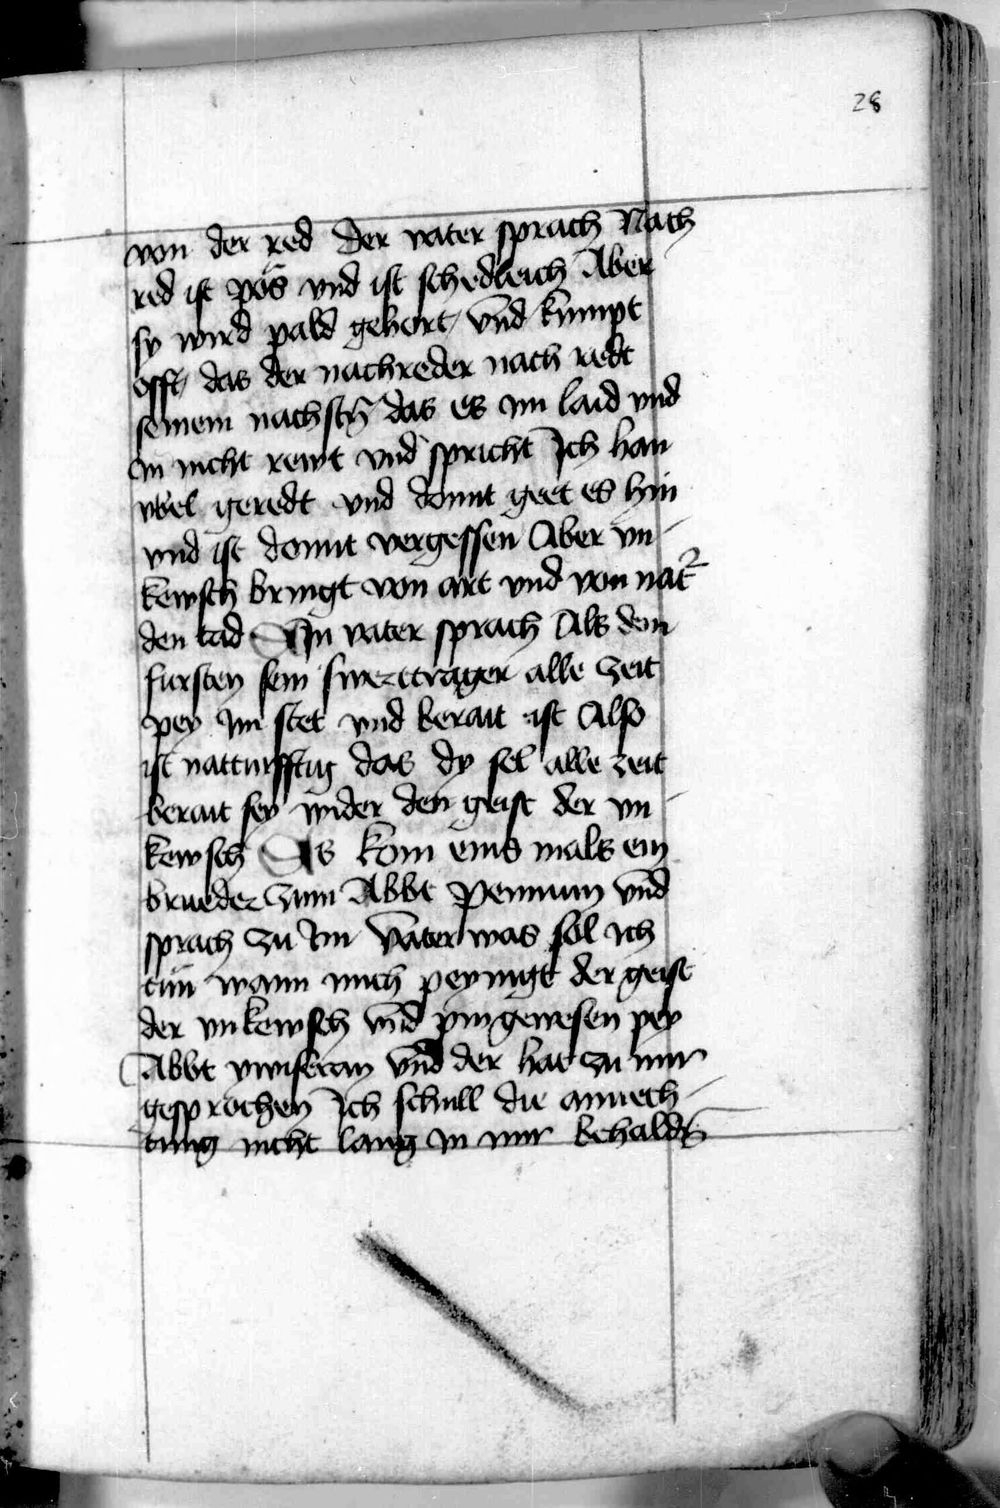 28
von der red Der vater sprach Nach
red ist pös vnd ist schedleich Aber
sy wird pald gehort / vnd kumpt
offt / das der nachreder nach redt
seinem nachstn̄ das es im laid vnd
in nicht rewt vnd spricht Ich han
vbel geredt vnd domit geet es hin
vnd ist domit vergessen Aber vn-
kewsch bringt von art vnd von nat᷑
den tad Ain vater sprach Als dem
fursten sein swerttrager alle zeit
pey im stet vnd berait ist Also
ist natturfftig das dy sel alle zeit
berait sey wider den geist der vn-
kewsch Es kom eins mals ein
brueder zum Abbt Pemium vnd
sprach zu Im Vater was sol ich
tün wann mich peynigt der geist
der vnkewsch vnd pin gewesen pey
Abbt ywisteron vnd der hat zu mir
gesprochen Ich schull die anuech-
tung nicht lang in mir behaldn̄